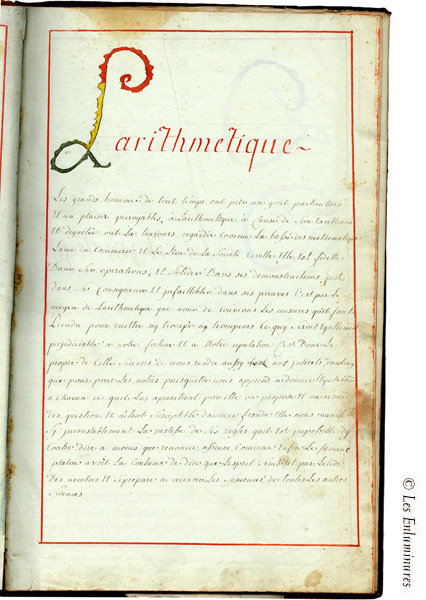 Larithmetique
Les grands hommes de tout temps ont pris un gout particulier
Et un plaisir incroyable, a Larithmetique a Cause de Son Excellence
Et dignitée ont La toujours regardée comme La base des mathematique
Lame du Commerce Et Le Lien de La Societé Civille, Elle Est fidelle
Dans Ses operations, Et Solide Dans Ses demonstractions juste
dans Ses Consequences Et infaillible dans ses preuves C'est par Le
moyen de Larithmetique que nous de couvrons Les mesures quil faut
Prendre pour mettre ny trompé ny trompeurs Ce quy Seroit Egallement
prejudiciable a notre fortune Et a Notre reputation C'est Donc Le
propre de Cette Science de nous rendre aussy aux interets
que pour Les notres puisquelle nous apprend a donner
a Chacun Ce quil Luy appartient par elle on propose Et on
des question Et n'étant Susceptible daucune fraude Elle nous
Sy incontestablement La justesse de Ses regles quil Est impossible dy
Contre dire a moins que renoncer au Sens Commun Enfin Le fameux
platon avoit La Coutume de dire que Lesprit par Letude
Des nombres Et Se prepare a recevoir Les Semences de toutes Les autres
Sciences
© Les Enluminures